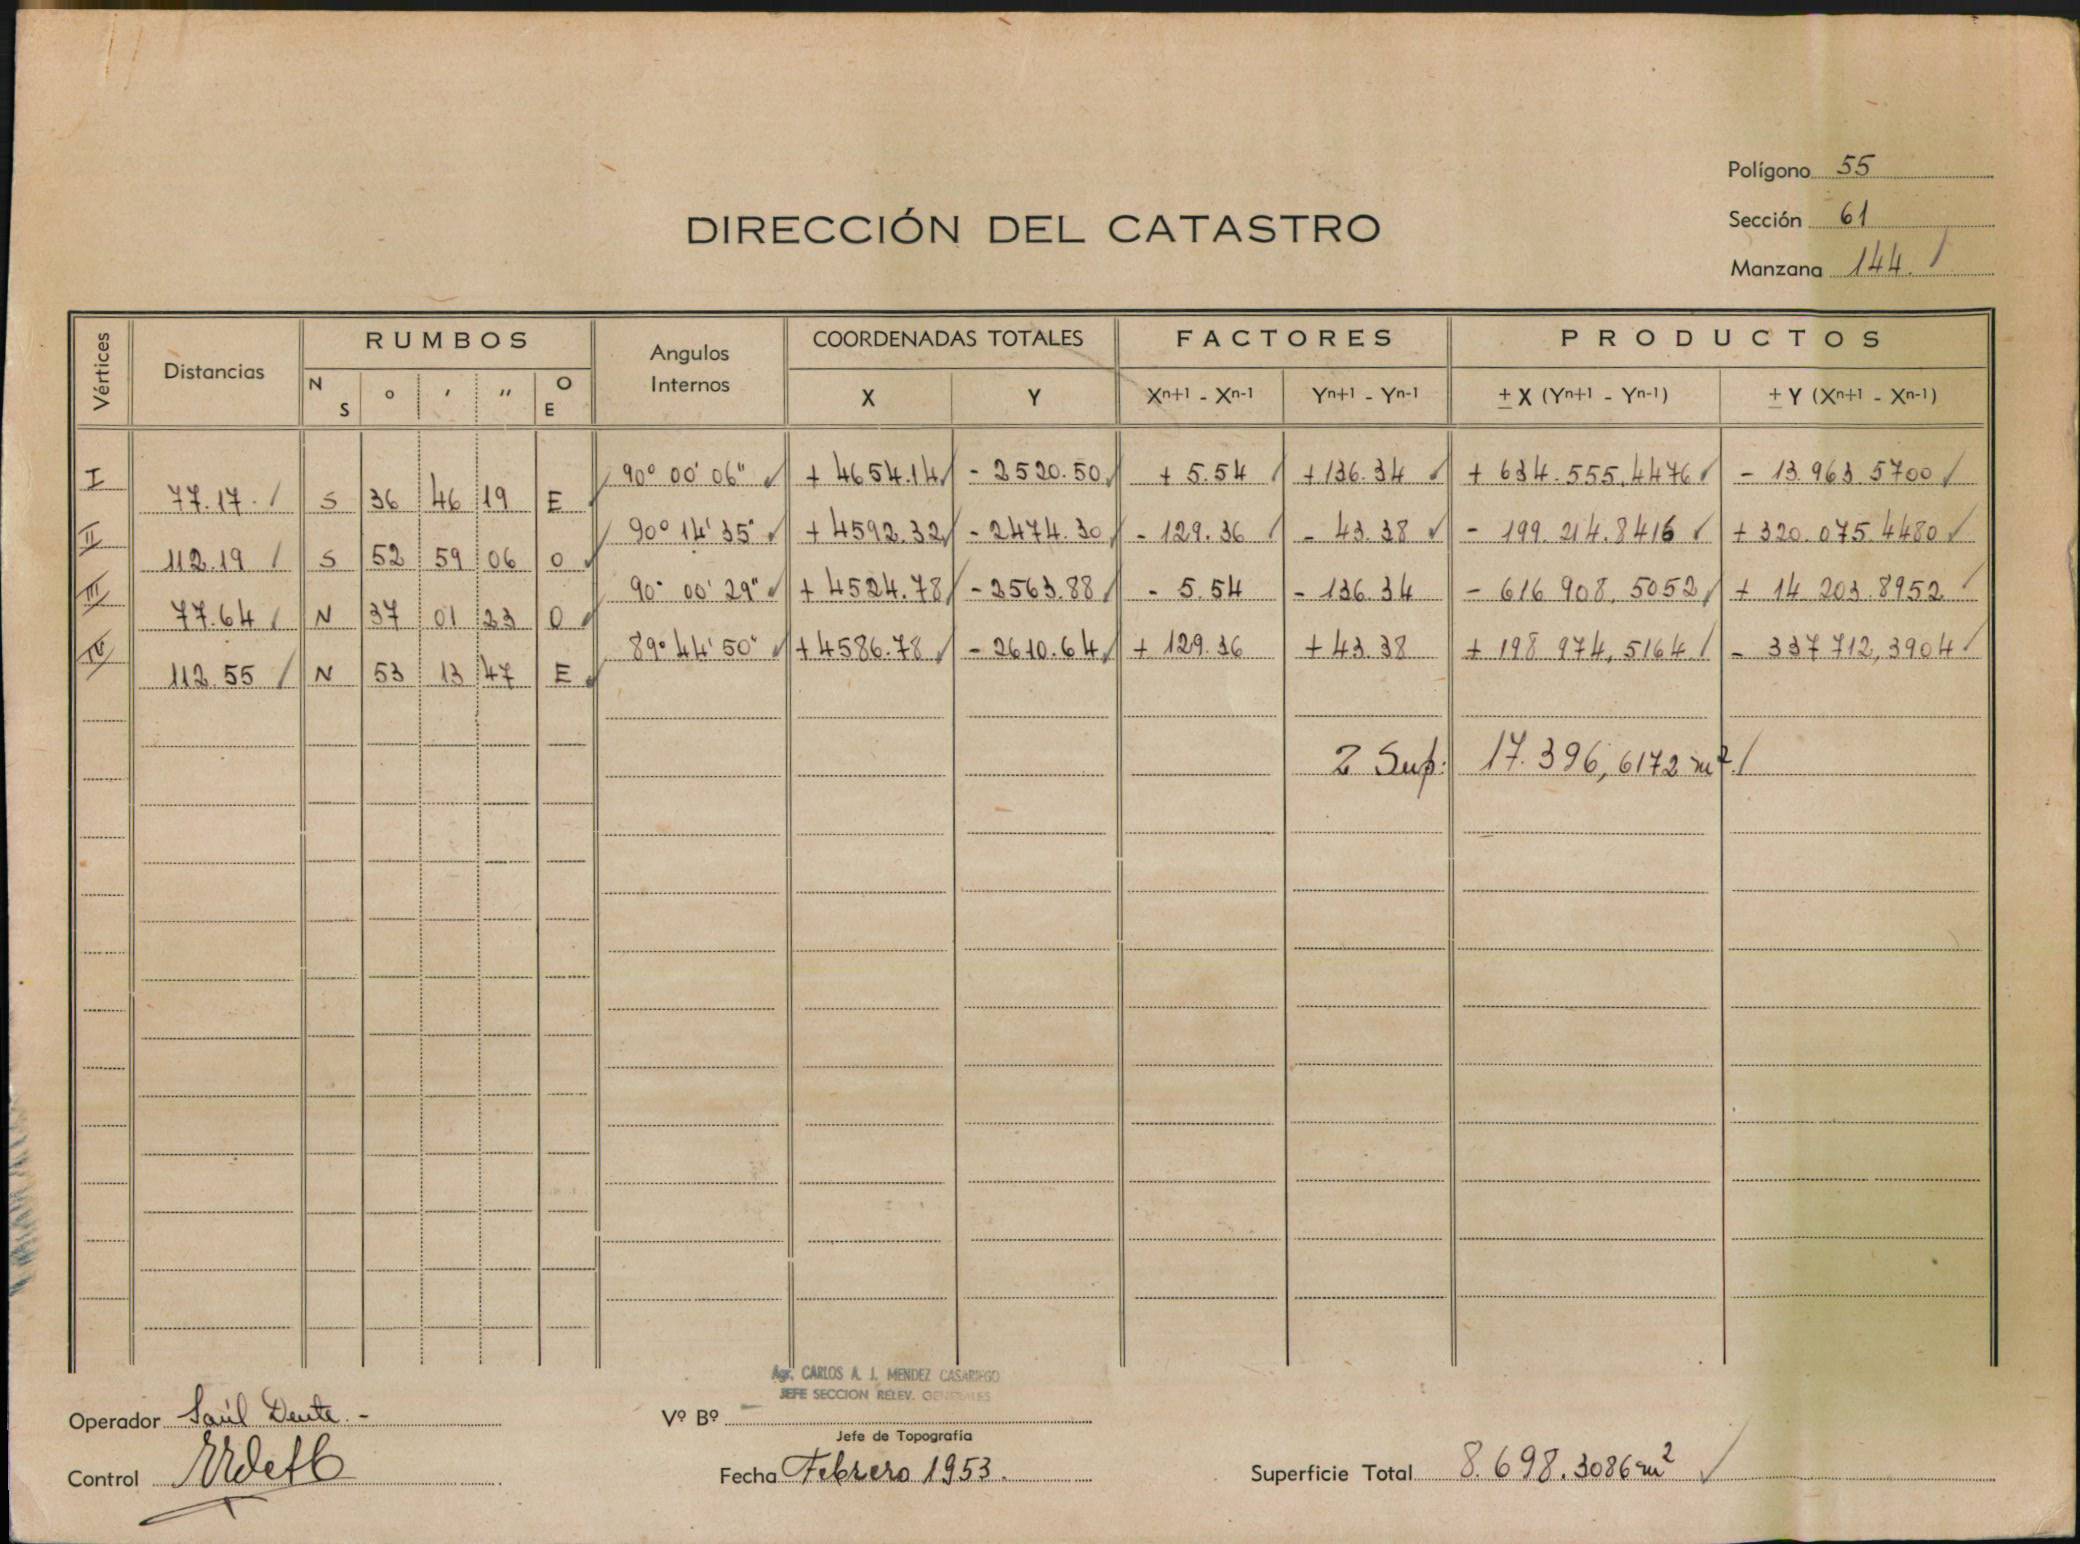 Polígono 55
Sección 61
Manzana 144.
DIRECCIÓN DEL CATASTRO
Vértices Distancias RUMBOS Angulos Internos COORDENADAS TOTALES FACTORES PRODUCTOS
N S ° ' " O E X Y Xn+1 - Xn-1 Yn+1 - Yn-1 ± X (Yn+1 - Yn-1) ± Y (Xn+1 - Xn-1)
I 90° 00' 06" + 4654.14 - 2520.50 + 5.54 + 136.34 + 634.555,4476 - 13.963.5700
77.17. S 36 46 19 E
II 90° 14' 35" + 4592.32 - 2474.30 - 129.36 - 43.38 - 199.214.8416 + 320.075.4480
112.19 S 52 59 06 O
III 90° 00' 29" + 4524.78 - 2563.88 - 5.54 - 136.34 - 616 908,5052 + 14 203.8952
77.64 N 37 01 23 O
IV 89° 44' 50" + 4586.78 - 2610.64 + 129.36 + 43.38 + 198 974,5164 - 337 712,3904
112.55 N 53 13 47 E
2 Sup: 17.396,6172 m2.
Agr. CARLOS A. J. MENDEZ CASARIEGO
JEFE SECCION RELEV. GENERALES
Operador Saúl Dente.-
Vº Bº
Jefe de Topografía
Control
Fecha Febrero 1953.
Superficie Total 8.698.3086 m2